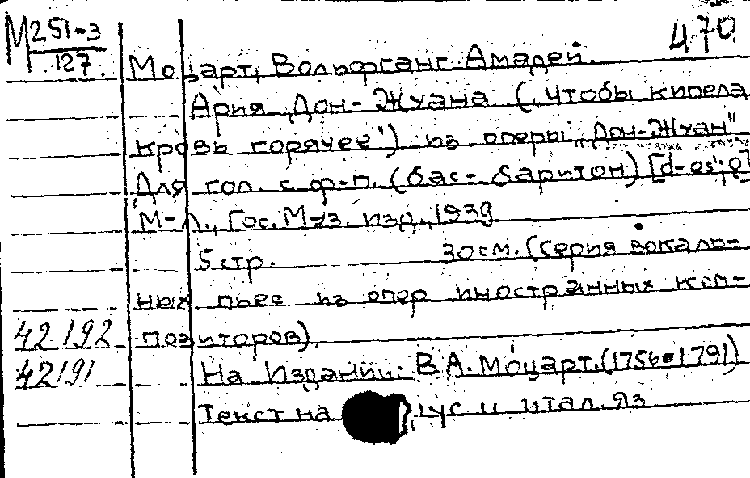 М 251-3 470
127. Моцарт, Вольфганг Амадей.
Ария „Дон-Жуана („Чтобы кипела
кровь горячее") из оперы „Дон-Жуан"
Для гол. с ф-п. (бас-баритон)
М-Л., Гос. Муз. изд., 1939
5 стр. 30 см. (серия вокаль-
ных пьес из опер иностранных ком-
42192 позиторов)
42191 На Издании: В.А. Моцарт. (1756-1791)
Текст на рус и итал. яз